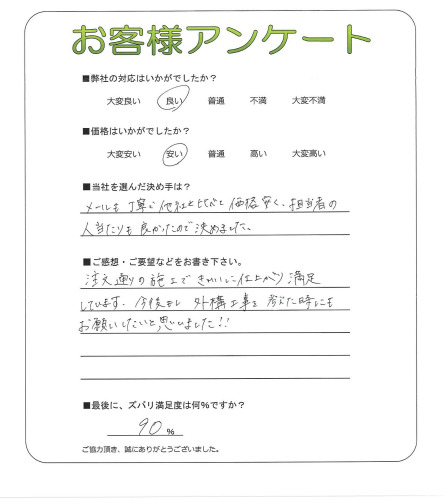 お客様アンケート
■弊社の対応はいかがでしたか?
大変良い 良い 普通 不満 大変不満
■価格はいかがでしたか?
大変安い 安い 普通 高い 大変高い
■当社を選んだ決め手は?
メールも丁寧で他社と比べて価格安く、担当者の
人当たりも良かったので決めました。
■ご感想・ご要望などをお書き下さい。
注文通りの施工できれいに仕上がり満足
しています。今後もし外構工事を考えた時にも
お願いしたいと思いました!!
■最後に、ズバリ満足度は何%ですか?
90 %
ご協力頂き、誠にありがとうございました。